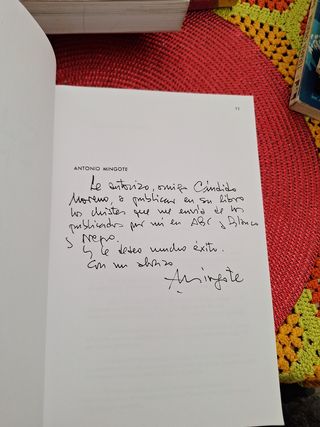 11
ANTONIO MINGOTE
Le autorizo, amigo Cándido
Moreno, a publicar en su libro
los chistes que me envía de los
publicados por mí en ABC y Blanco
y Negro.
Y le deseo mucho éxito.
Con un abrazo
Mingote